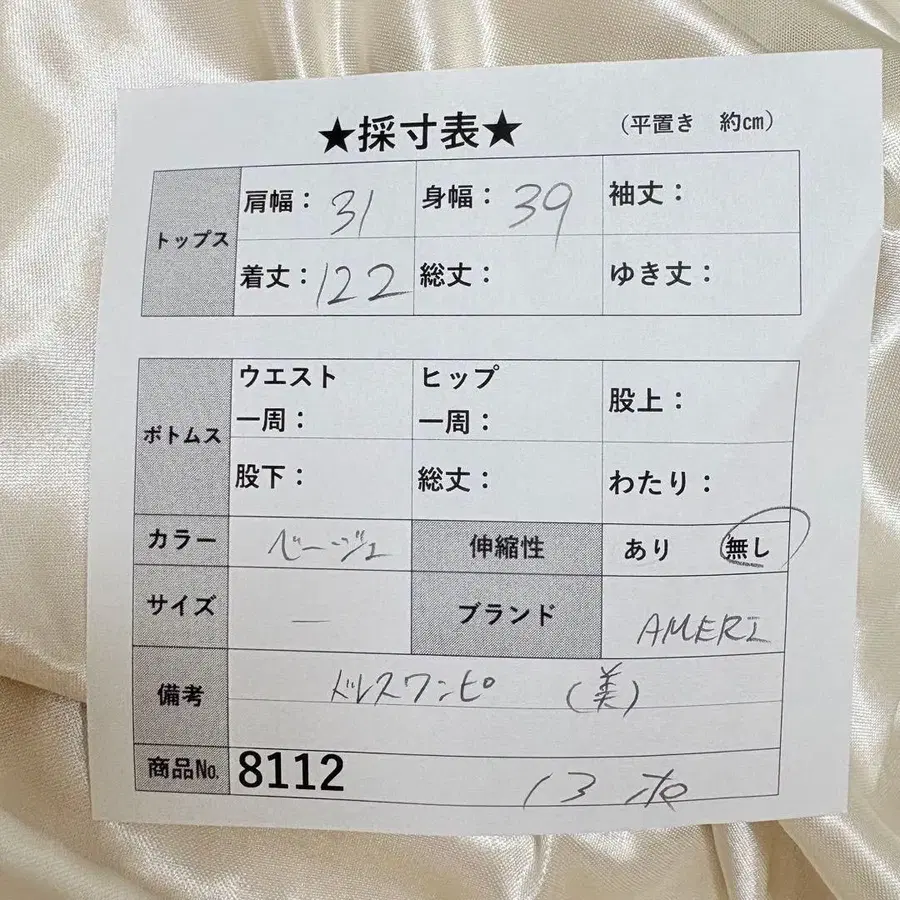 ★採寸表★ (平置き 約cm)
トップス 肩幅: 31 身幅: 39 袖丈:
着丈: 122 総丈: ゆき丈:
ボトムス ウエスト一周: ヒップ一周: 股上:
股下: 総丈: わたり:
カラー ベージュ 伸縮性 あり 無し
サイズ — ブランド AMERI
備考 ドレスワンピ (美)
商品No. 8112 13